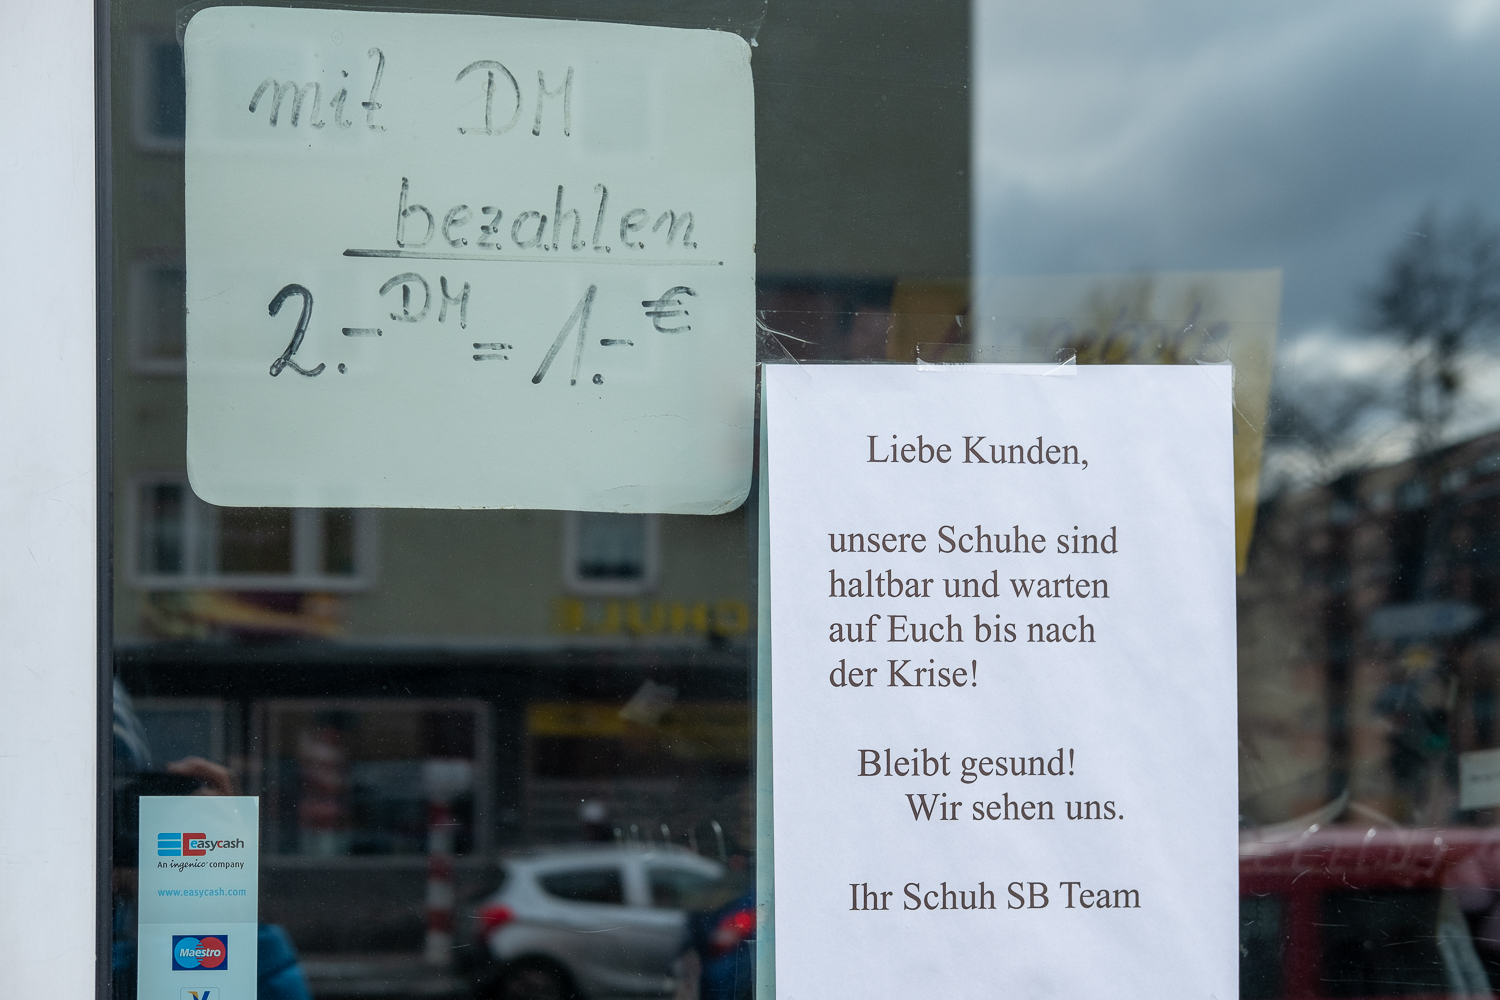 mit DM
bezahlen
2.-DM = 1.-€
Liebe Kunden,
unsere Schuhe sind
haltbar und warten
auf Euch bis nach
der Krise!
Bleibt gesund!
Wir sehen uns.
Ihr Schuh SB Team
easycash
An ingenico company
www.easycash.com
Maestro